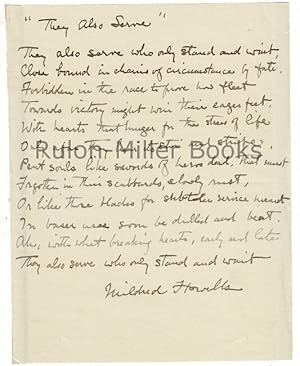 "They Also Serve"
They also serve who only stand and wait,
Close bound in chains of circumstances by fate.
Forbidden in the race to prove how fleet
Towards victory might win their eager feet.
With hearts that hunger for the stress of life
Rulon-Miller Books
Pent souls like swords of heros dead, that must
Forgotten in their scabbards, slowly rust,
Or like those blades for subtler service meant
In baser uses soon be dulled and bent.
Ah, with what breaking hearts, early and late
They also serve who only stand and wait
Mildred Howells